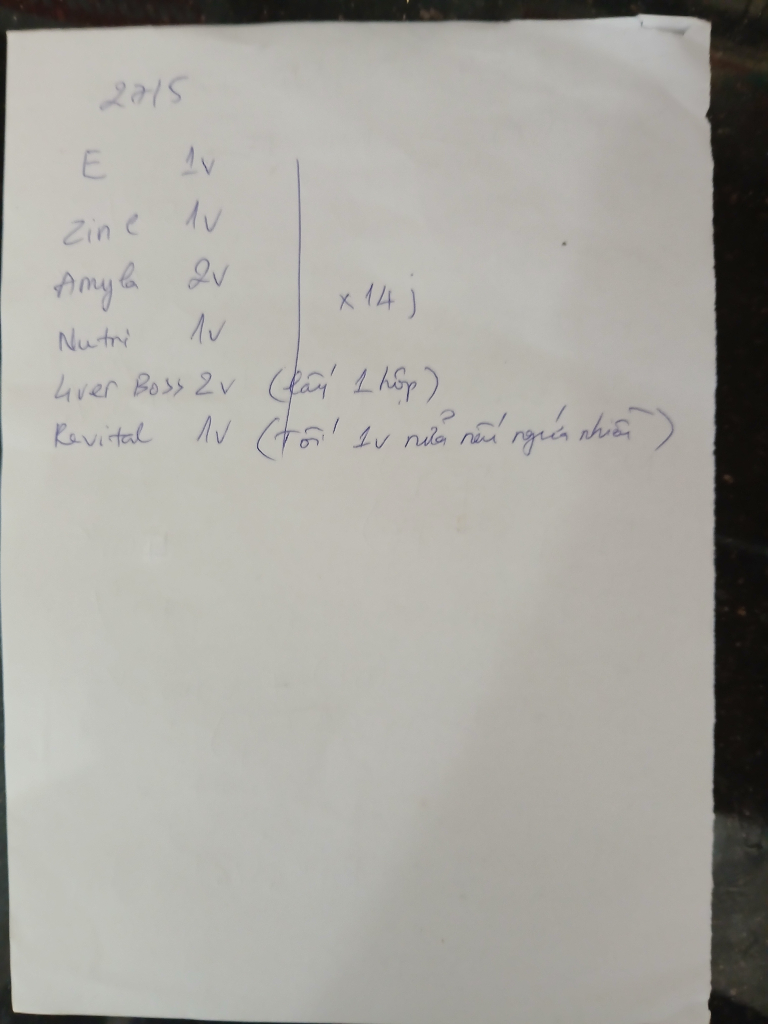 27/5
E 1v
Zinc 1v
Amyla 2v
x 14 j
Nutri 1v
Liver Boss 2v (lấy 1 hộp)
Revital 1v (Tối 1v nữa nếu ngứa nhiều)